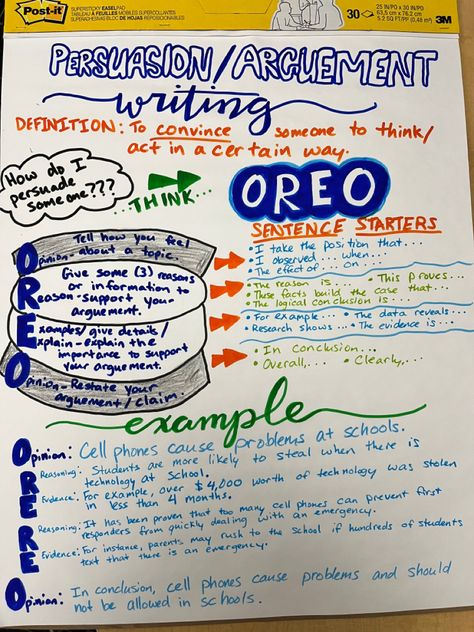 Post-it
SUPERSTICKY EASEL PAD
30
25 IN/PO x 30 IN/PO
63,5 cm x 76,2 cm
5.2 SQ FT/PI² (0,48 m²)
3M
PERSUASION/ARGUEMENT
writing
DEFINITION: To convince someone to think/
act in a certain way.
How do I
persuade
someone???
THINK...
OREO
SENTENCE STARTERS
Tell how you feel
Opinion - about a topic.
Give some (3) reasons
or information to
Reason - support your
arguement.
Examples/ give details/
explain - explain the
importance to support
your arguement.
Opinion - Restate your
arguement/claim.
• I take the position that...
• I observed ... when...
• The effect of... on...
• The reason is... • This proves...
• These facts build the case that...
• The logical conclusion is...
• For example... • The data reveals...
• Research shows... • The evidence is...
• In Conclusion...
• Overall,... • Clearly,...
example
Opinion: Cell phones cause problems at schools.
Reasoning: Students are more likely to steal when there is
technology at school.
Evidence: For example, over $4,000 worth of technology was stolen
in less than 4 months.
Reasoning: It has been proven that too many cell phones can prevent first
responders from quickly dealing with an emergency.
Evidence: For instance, parents may rush to the school if hundreds of students
text that there is an emergency.
Opinion: In conclusion, cell phones cause problems and should
not be allowed in schools.
O
R
E
R
E
O